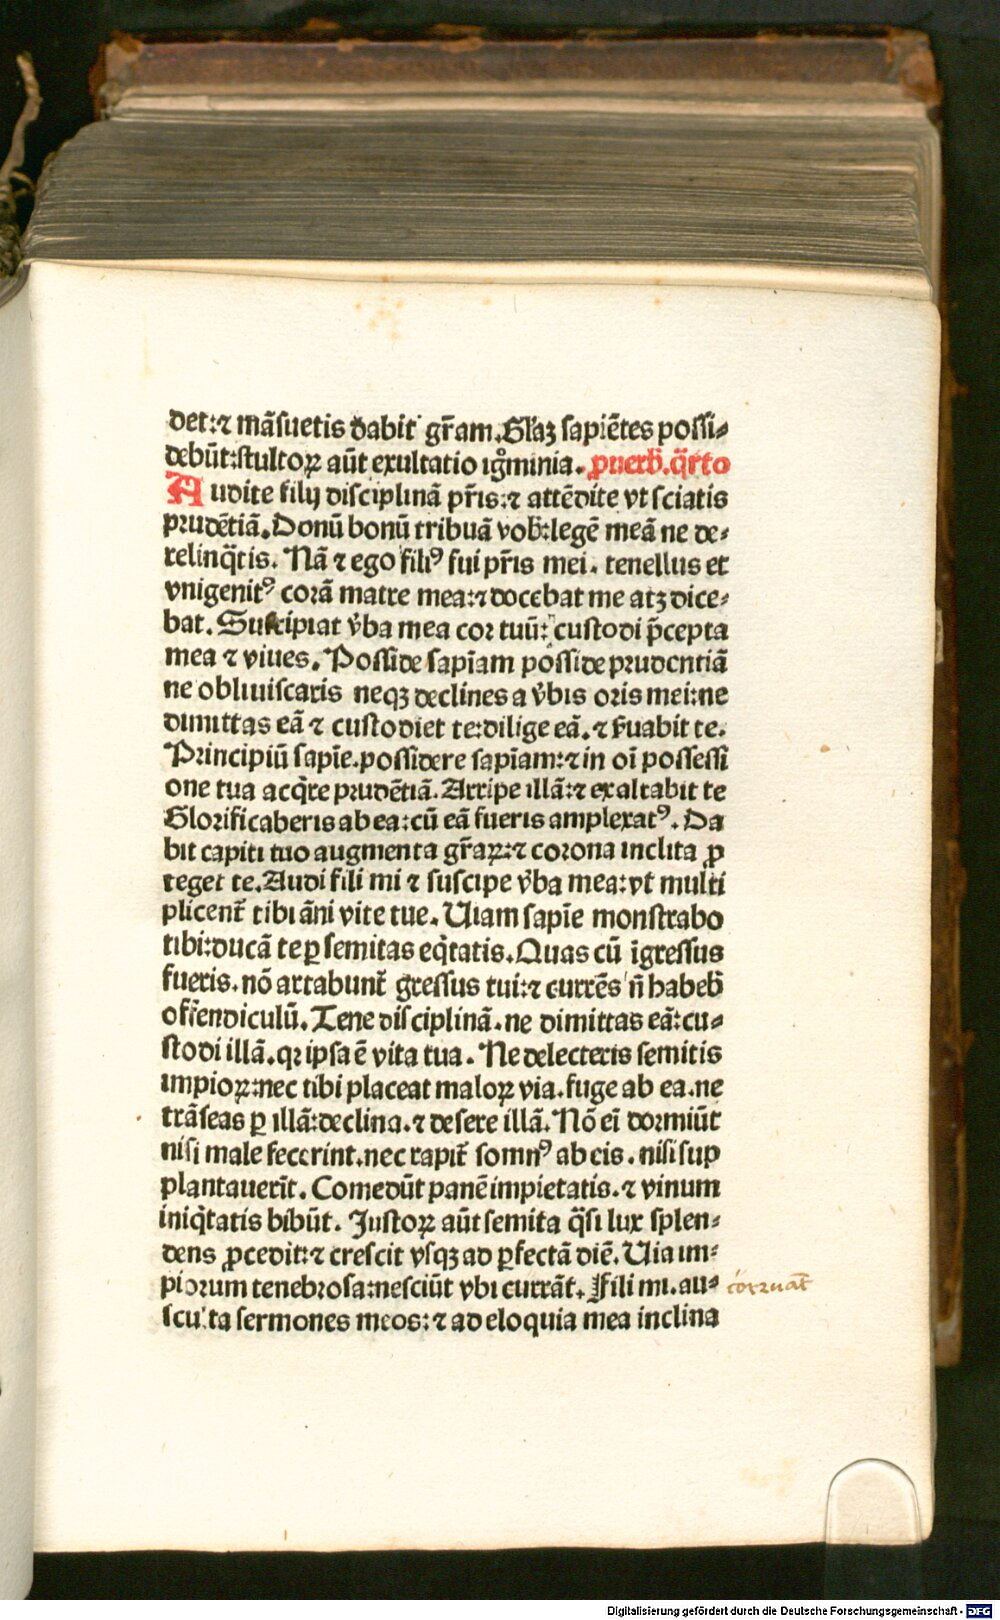 det:⁊ mãsuetis dabit gr̃am. Gl̃aꝫ sapiẽtes possi⸗
debũt:stultoꝝ aũt exultatio igͦminia. ꝓuerb̃. q̃rto
Audite filij disciplinã pr̃is:⁊ attẽdite vt sciatis
prudẽtiã. Donũ bonũ tribuã vob̃:legẽ meã ne de⸗
relinq̃tis. Nã ⁊ ego filiꝰ fui pr̃is mei. tenellus et
vnigenitꝰ corã matre mea:⁊ docebat me atꝫ dice⸗
bat. Suscipiat v̉ba mea cor tuũ: custodi p̃cepta
mea ⁊ viues. Posside sapĩam posside prudentiã
ne obliuiscaris neqꝫ declines a v̉bis oris mei:ne
dimittas eã ⁊ custodiet te:dilige eã. ⁊ ẜuabit te.
Principiũ sapĩe. possidere sapĩam:⁊ in oĩ possessi
one tua acq̃re prudẽtiã. Arripe illã:⁊ exaltabit te
Glorificaberis ab ea:cũ eã fueris amplexatꝰ. Da
bit capiti tuo augmenta gr̃aꝝ:⁊ corona inclita ꝓ
teget te. Audi fili mi ⁊ suscipe v̉ba mea:vt multi
plicent̃ tibi ãni vite tue. Uiam sapĩe monstrabo
tibi:ducã te ꝑ semitas eq̃tatis. Quas cũ ĩgressus
fueris. nõ artabunt̃ gressus tui:⁊ currẽs ñ habeb̃
offendiculũ. Tene disciplinã. ne dimittas eã:cu⸗
stodi illã. qꝛ ipsa ẽ vita tua. Ne delecteris semitis
impioꝝ:nec tibi placeat maloꝝ via. fuge ab ea. ne
trãseas ꝑ illã:declina. ⁊ desere illã. Nõ eĩ dormiũt
nisi male fecerint. nec rapit̃ somnꝰ ab eis. nisi sup
plantauerĩt. Comedũt panẽ impietatis. ⁊ vinum
iniq̃tatis bibũt. Justoꝝ aũt semita q̃si lux splen⸗
dens ꝓcedit:⁊ crescit vsqꝫ ad ꝑfectã diẽ. Uia im⸗
piorum tenebrosa:nesciũt vbi currãt. Fili mi. au⸗ corruãt
sculta sermones meos:⁊ ad eloquia mea inclina
Digitalisierung gefördert durch die Deutsche Forschungsgemeinschaft - DFG